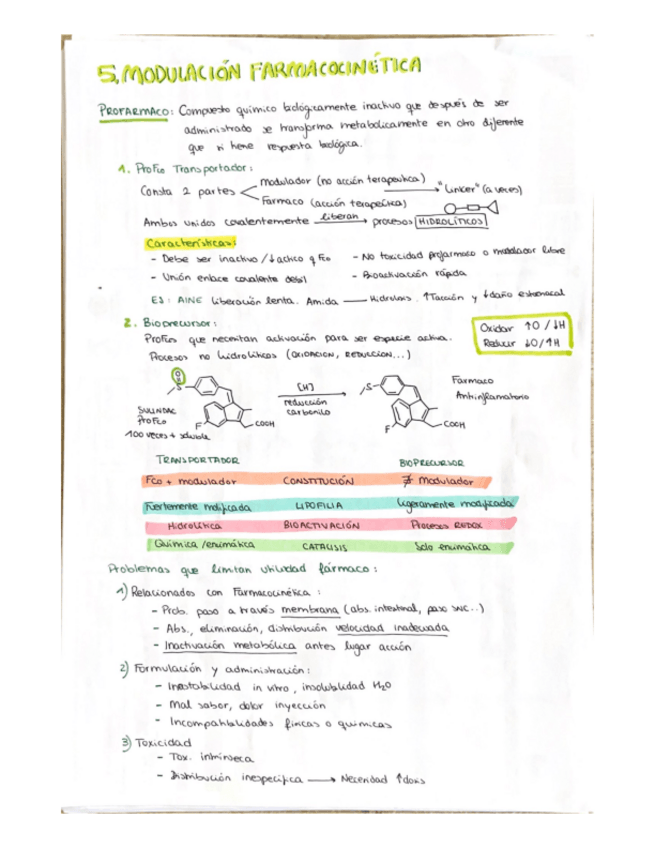 5. MODULACIÓN FARMACOCINÉTICA
PROFARMACO: Compuesto químico biológicamente inactivo que después de ser
administrado se transforma metabolicamente en otro diferente
que si tiene respuesta biológica.
1. ProFco Transportador:
Consta 2 partes
modulador (no acción terapeutica)
Farmaco (acción terapeútica)
"Linker" (a veces)
Ambos unidos covalentemente liberan procesos HIDROLÍTICOS
Características:
- Debe ser inactivo / ↓activo q Fco
- No toxicidad profarmaco o modulador libre
- Unión enlace covalente debil
- Bioactivación rápida
ES: AINE liberación lenta. Amida — Hidrolisis. ↑Tacción y ↓daño estomacal
2. Bioprecursor:
ProFcos que necesitan activación para ser especie activa.
Procesos no hidrolíticos (OXIDACION, REDUCCION...)
Oxidar ↑O / ↓H
Reducir ↓O / ↑H
O
S
[H]
reducción
carbonilo
S
Farmaco
Antiinflamatorio
SULINDAC
ProFco
100 veces + soluble
F
COOH
F
COOH
TRANSPORTADOR BIOPRECURSOR
Fco + modulador CONSTITUCIÓN ∄ Modulador
Fuertemente modificada LIPOFILIA Ligeramente modificada
Hidrolítica BIOACTIVACIÓN Procesos REDOX
Química / enzimática CATALISIS Solo enzimatica
Problemas que limitan utilidad fármaco:
1) Relacionados con Farmacocinética:
- Prob. paso a través membrana (abs. intestinal, paso SNC..)
- Abs., eliminación, distribución velocidad inadecuada
- Inactivación metabólica antes lugar acción
2) Formulación y administración:
- Inestabilidad in vitro, insolubilidad H2O
- Mal sabor, dolor inyección
- Incompatibilidades físicas o químicas
3) Toxicidad
- Tox. intrínseca
- Distribución inespecífica → Necesidad ↑dosis